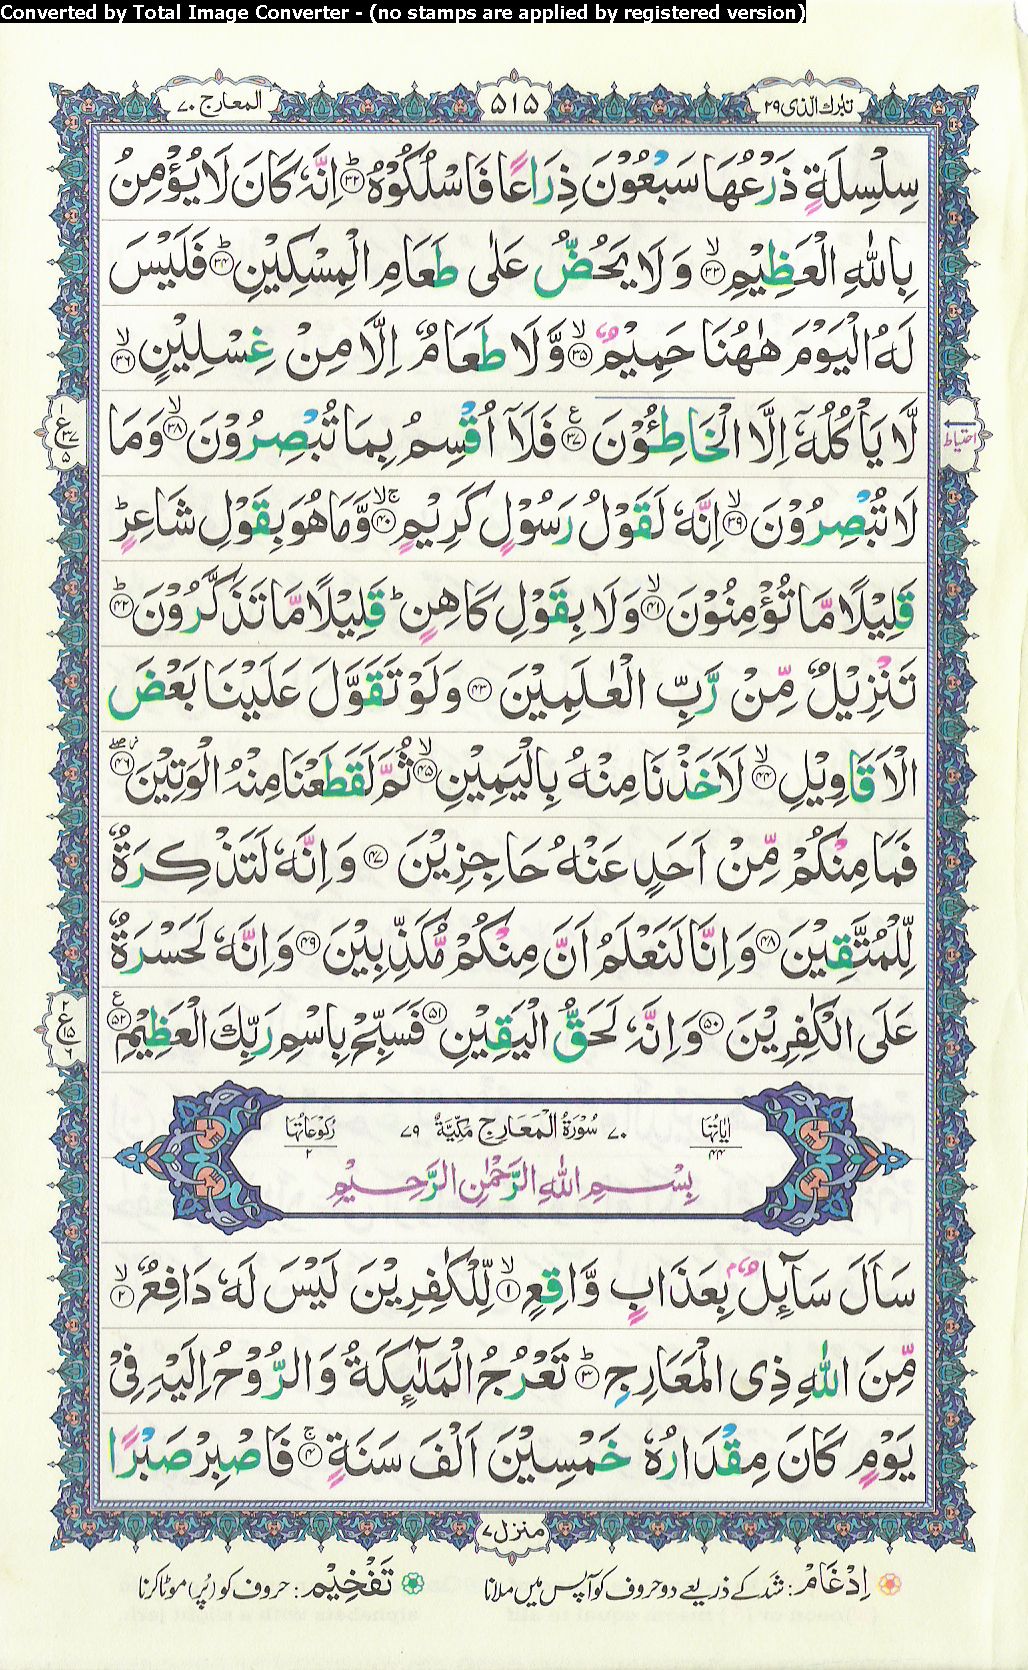 Converted by Total Image Converter - (no stamps are applied by registered version)
تبٰرك الذی ۲۹ ۵۱۵ المعارج ۷۰
سِلْسِلَةٍ ذَرْعُهَا سَبْعُوْنَ ذِرَاعًا فَاسْلُكُوْهُ ؕ﴿۳۲﴾ اِنَّهٗ كَانَ لَا يُؤْمِنُ
بِاللّٰهِ الْعَظِيْمِ ۙ﴿۳۳﴾ وَلَا يَحُضُّ عَلٰى طَعَامِ الْمِسْكِيْنِ ؕ﴿۳۴﴾ فَلَيْسَ
لَهُ الْيَوْمَ هٰهُنَا حَمِيْمٌ ۙ﴿۳۵﴾ وَّلَا طَعَامٌ اِلَّا مِنْ غِسْلِيْنٍ ۙ﴿۳۶﴾
لَّا يَاْكُلُهٗۤ اِلَّا الْخَاطِـُٔوْنَ ﴿۳۷﴾ع فَلَاۤ اُقْسِمُ بِمَا تُبْصِرُوْنَ ۙ﴿۳۸﴾ وَمَا
لَا تُبْصِرُوْنَ ۙ﴿۳۹﴾ اِنَّهٗ لَقَوْلُ رَسُوْلٍ كَرِيْمٍ ۚۙ﴿۴۰﴾ وَّمَا هُوَ بِقَوْلِ شَاعِرٍ ؕ
قَلِيْلًا مَّا تُؤْمِنُوْنَ ۙ﴿۴۱﴾ وَلَا بِقَوْلِ كَاهِنٍ ؕ قَلِيْلًا مَّا تَذَكَّرُوْنَ ؕ﴿۴۲﴾
تَنْزِيْلٌ مِّنْ رَّبِّ الْعٰلَمِيْنَ ﴿۴۳﴾ وَلَوْ تَقَوَّلَ عَلَيْنَا بَعْضَ
الْاَقَاوِيْلِ ۙ﴿۴۴﴾ لَاَخَذْنَا مِنْهُ بِالْيَمِيْنِ ۙ﴿۴۵﴾ ثُمَّ لَقَطَعْنَا مِنْهُ الْوَتِيْنَ ﴿۴۶﴾
فَمَا مِنْكُمْ مِّنْ اَحَدٍ عَنْهُ حَاجِزِيْنَ ﴿۴۷﴾ وَاِنَّهٗ لَتَذْكِرَةٌ
لِّلْمُتَّقِيْنَ ﴿۴۸﴾ وَاِنَّا لَنَعْلَمُ اَنَّ مِنْكُمْ مُّكَذِّبِيْنَ ﴿۴۹﴾ وَاِنَّهٗ لَحَسْرَةٌ
عَلَى الْكٰفِرِيْنَ ﴿۵۰﴾ وَاِنَّهٗ لَحَقُّ الْيَقِيْنِ ﴿۵۱﴾ فَسَبِّحْ بِاسْمِ رَبِّكَ الْعَظِيْمِ ﴿۵۲﴾ع
اٰيَاتُهَا ۴۴ ۷۰ سُوْرَةُ الْمَعَارِجِ مَكِّيَّةٌ ۷۹ رُكُوْعَاتُهَا ۲
بِسْمِ اللّٰهِ الرَّحْمٰنِ الرَّحِيْمِ
سَاَلَ سَآئِلٌۢ بِعَذَابٍ وَّاقِعٍ ۙ﴿۱﴾ لِّلْكٰفِرِيْنَ لَيْسَ لَهٗ دَافِعٌ ۙ﴿۲﴾
مِّنَ اللّٰهِ ذِى الْمَعَارِجِ ؕ﴿۳﴾ تَعْرُجُ الْمَلٰٓئِكَةُ وَالرُّوْحُ اِلَيْهِ فِىْ
يَوْمٍ كَانَ مِقْدَارُهٗ خَمْسِيْنَ اَلْفَ سَنَةٍ ۚ﴿۴﴾ فَاصْبِرْ صَبْرًا
احتیاط
ع ۱ ۳۷ ۵
ع ۲ ۱۵ ۶
منزل ۷
اِدْغَام: شد کے ذریعے دو حروف کو آپس میں ملانا تَفْخِیْم: حروف کو (پُر) موٹا کرنا